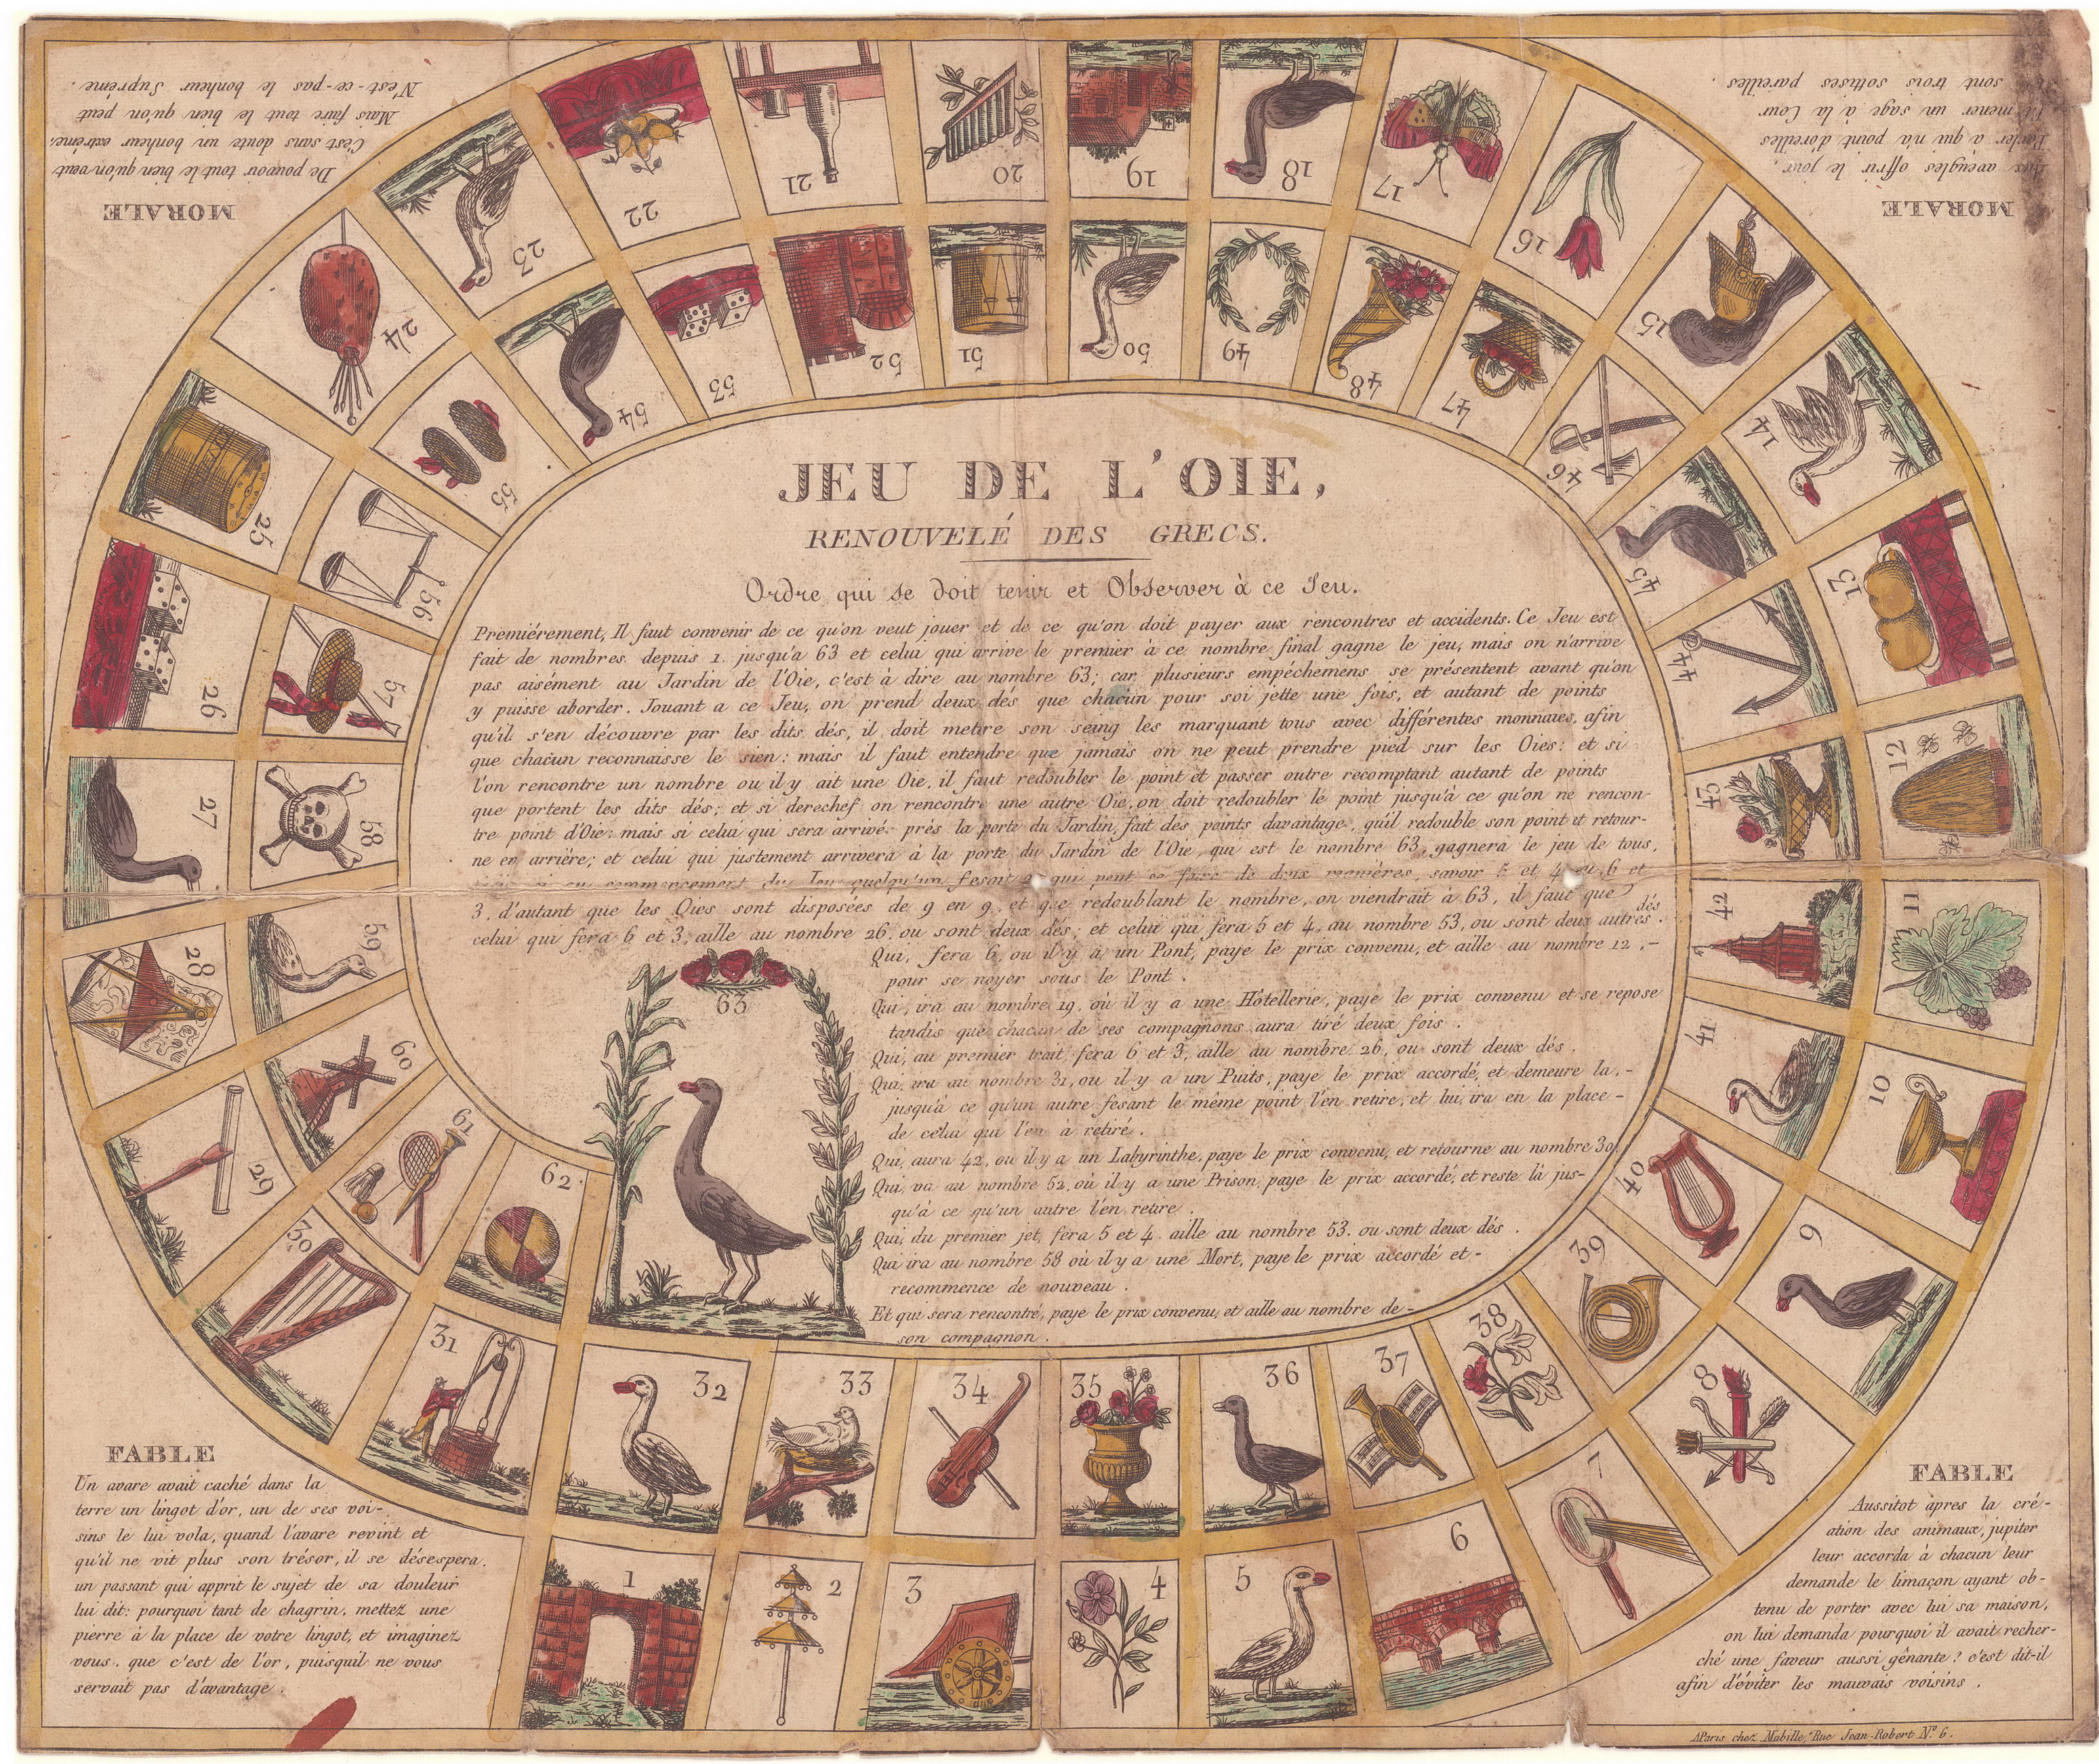 JEU DE L'OIE,
RENOUVELÉ DES GRECS.
Ordre qui se doit tenir et Observer à ce Jeu.
Premiérement, Il faut convenir de ce qu'on veut jouer et de ce qu'on doit payer aux rencontres et accidents. Ce Jeu est
fait de nombres depuis 1. jusqu'a 63 et celui qui arrive le premier à ce nombre final gagne le jeu, mais on n'arrive
pas aisément au Jardin de l'Oie, c'est à dire au nombre 63; car plusieurs empéchemens se présentent avant qu'on
y puisse aborder. Jouant a ce Jeu, on prend deux dés que chacun pour soi jette une fois, et autant de points
qu'il s'en découvre par les dits dés, il doit mettre son seing les marquant tous avec différentes monnaies, afin
que chacun reconnaisse le sien: mais il faut entendre que jamais on ne peut prendre pied sur les Oies: et si
l'on rencontre un nombre ou il y ait une Oie, il faut redoubler le point et passer outre recomptant autant de points
que portent les dits dés; et si derechef on rencontre une autre Oie, on doit redoubler le point jusqu'à ce qu'on ne rencon-
tre point d'Oie: mais si celui qui sera arrivé près la porte du Jardin, fait des points davantage, qu'il redouble son point et retour-
ne en arriére; et celui qui justement arrivera à la porte du Jardin de l'Oie, qui est le nombre 63, gagnera le jeu de tous,
si au commencement du Jeu quelqu'un fesoit 9 qui peut se faire de deux manières, savoir 5 et 4 ou 6 et
3, d'autant que les Oies sont disposées de 9 en 9, et que redoublant le nombre, on viendrait à 63, il faut que
celui qui fera 6 et 3, aille au nombre 26, ou sont deux dés; et celui qui fera 5 et 4, au nombre 53, ou sont deux autres dés.
Qui, fera 6, ou il y a un Pont, paye le prix convenu, et aille au nombre 12,-
pour se noyer sous le Pont.
Qui, ira au nombre 19, où il y a une Hôtellerie, paye le prix convenu et se repose
tandis que chacun de ses compagnons aura tiré deux fois.
Qui, au premier trait, fera 6 et 3, aille au nombre 26, ou sont deux dés.
Qui, ira au nombre 31, ou il y a un Puits, paye le prix accordé, et demeure la,-
jusqu'à ce qu'un autre fesant le même point l'en retire, et lui, ira en la place-
de celui qui l'en à retiré.
Qui, aura 42, ou il y a un Labyrinthe, paye le prix convenu, et retourne au nombre 30.
Qui, va au nombre 52, où il y a une Prison, paye le prix accordé, et reste là jus-
qu'à ce qu'un autre l'en retire.
Qui, du premier jet, fera 5 et 4, aille au nombre 53, ou sont deux dés.
Qui ira au nombre 58 où il y a une Mort, paye le prix accordé et-
recommence de nouveau.
Et qui sera rencontré, paye le prix convenu, et aille au nombre de-
son compagnon.
MORALE
De pouvoir tout le bien qu'on veut
C'est sans doute un bonheur extrême,
Mais faire tout le bien qu'on peut
N'est-ce-pas le bonheur Suprême.
MORALE
Aux aveugles offrir le jour,
Parler a qui n'a point d'oreilles
Et mener un sage à la Cour
sont trois sottises pareilles.
FABLE
Un avare avait caché dans la
terre un lingot d'or, un de ses voi-
sins le lui vola, quand l'avare revint et
qu'il ne vit plus son trésor, il se désespera.
un passant qui apprit le sujet de sa douleur
lui dit: pourquoi tant de chagrin, mettez une
pierre à la place de votre lingot, et imaginez
vous, que c'est de l'or, puisquil ne vous
servait pas d'avantage.
FABLE
Aussitot après la cré-
ation des animaux, jupiter
leur accorda à chacun leur
demande le limaçon ayant ob-
tenu de porter avec lui sa maison,
on lui demanda pourquoi il avait recher-
ché une faveur aussi gênante? c'est dit-il
afin d'éviter les mauvais voisins.
1
2
3
4
5
6
7
8
9
10
11
12
13
14
15
16
17
18
19
20
21
22
23
24
25
26
27
28
29
30
31
32
33
34
35
36
37
38
39
40
41
42
43
44
45
46
47
48
49
50
51
52
53
54
55
56
57
58
59
60
61
62
63
A Paris chez Mabille, Rue Jean-Robert N.º 6.